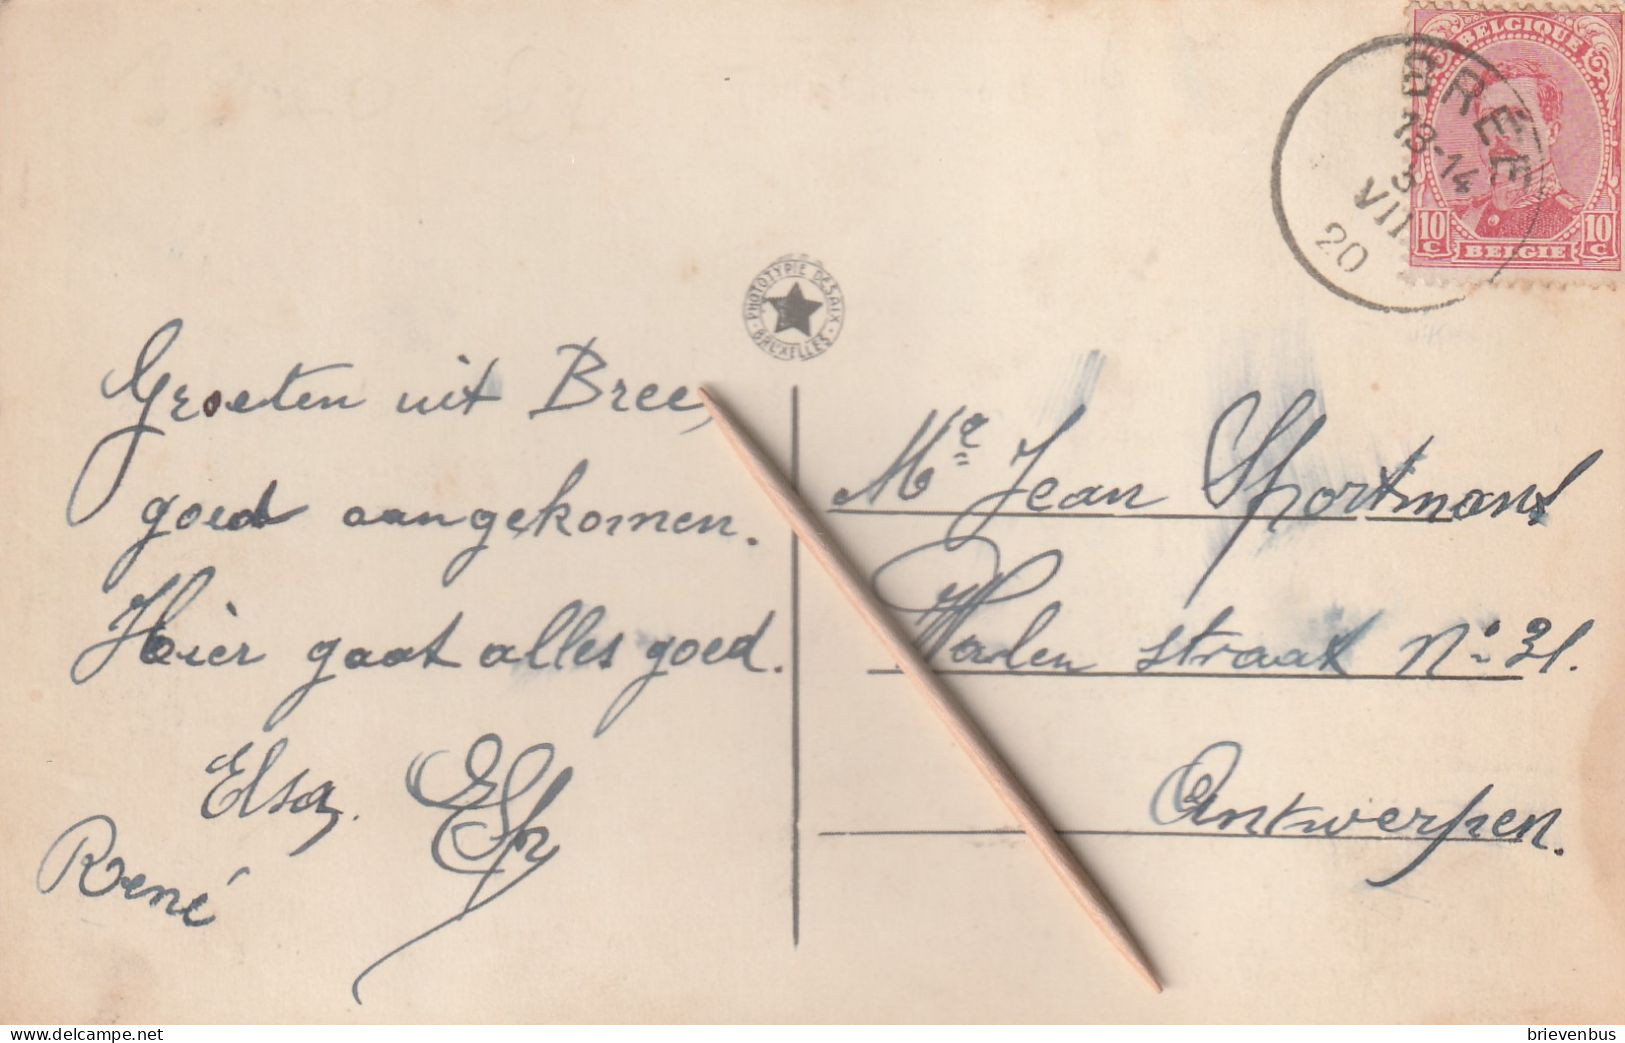 BELGIQUE
10 C 10 C
BELGIE
BRÉE
13-14
3
VII
20
PHOTOTYPIE DÉSAIX
BRUXELLES
Groeten uit Bree,
goed aangekomen.
Hier gaat alles goed.
Elsa.
René
Mr Jean Sportmans
Walen straat No 31.
Antwerpen.
delcampe.net
brievenbus